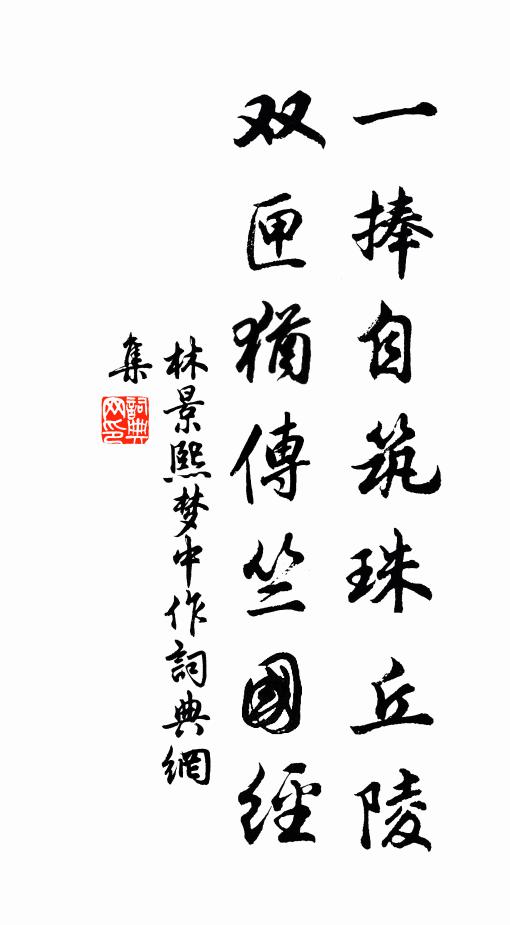 一捧自筑珠丘陵
双匣犹傳竺國經
林景熙梦中作詞典網
集
詞典網印